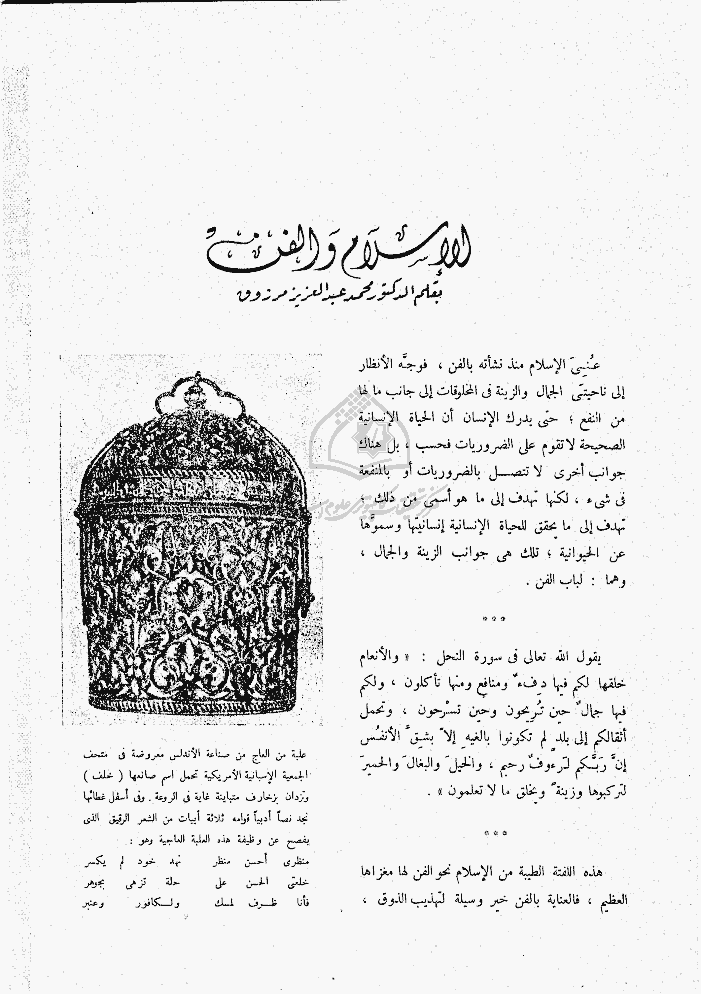 الإسلام والفن
بقلم الدكتور محمد عبد العزيز مرزوق
عُنِيَ الإسلام منذ نشأته بالفن ، فوجَّه الأنظار
إلى ناحيتى الجمال والزينة فى المخلوقات إلى جانب ما لها
من النفع ؛ حتى يدرك الإنسان أن الحياة الإنسانية
الصحيحة لا تقوم على الضروريات فحسب ، بل هناك
جوانب أخرى لا تتصل بالضروريات أو بالمنفعة
فى شىء ، لكنها تهدف إلى ما هو أسمى من ذلك ؛
تهدف إلى ما يحقق للحياة الإنسانية إنسانيتها وسموَّها
عن الحيوانية ؛ تلك هى جوانب الزينة والجمال ،
وهما : لباب الفن .
***
يقول الله تعالى فى سورة النحل : « والأنعام
خلقها لكم فيها دِفءٌ ومنافع ومنها تأكلون ، ولكم
فيها جمالٌ حين تُريحون وحين تسْرحون ، وتحمل
أثقالكم إلى بلدٍ لم تكونوا بالغيه إلاّ بشِقِّ الأنفُس
إنَّ ربَّكم لرءوفٌ رحيم ، والخيلَ والبغالَ والحميرَ
لتركبوها وزينةً ويخلق ما لا تعلمون » .
***
هذه اللفتة الطيبة من الإسلام نحو الفن لها مغزاها
العظيم ، فالعناية بالفن خير وسيلة لتهذيب الذوق ،
علبة من العاج من صناعة الأندلس معروضة فى متحف
الجمعية الإسبانية الأمريكية تحمل اسم صانعها ( خلف )
وتزدان بزخارف متباينة غاية فى الروعة . وفى أسفل غطائها
نجد نصاً أدبياً قوامه ثلاثة أبيات من الشعر الرقيق الذى
يفصح عن وظيفة هذه العلبة العاجية وهو :
منظرى أحسن منظر نهد خود لم يكسر
خلعتى الحسن على حلة تزهى بجوهر
فأنا ظرف لمسك ولكافور وعنبر